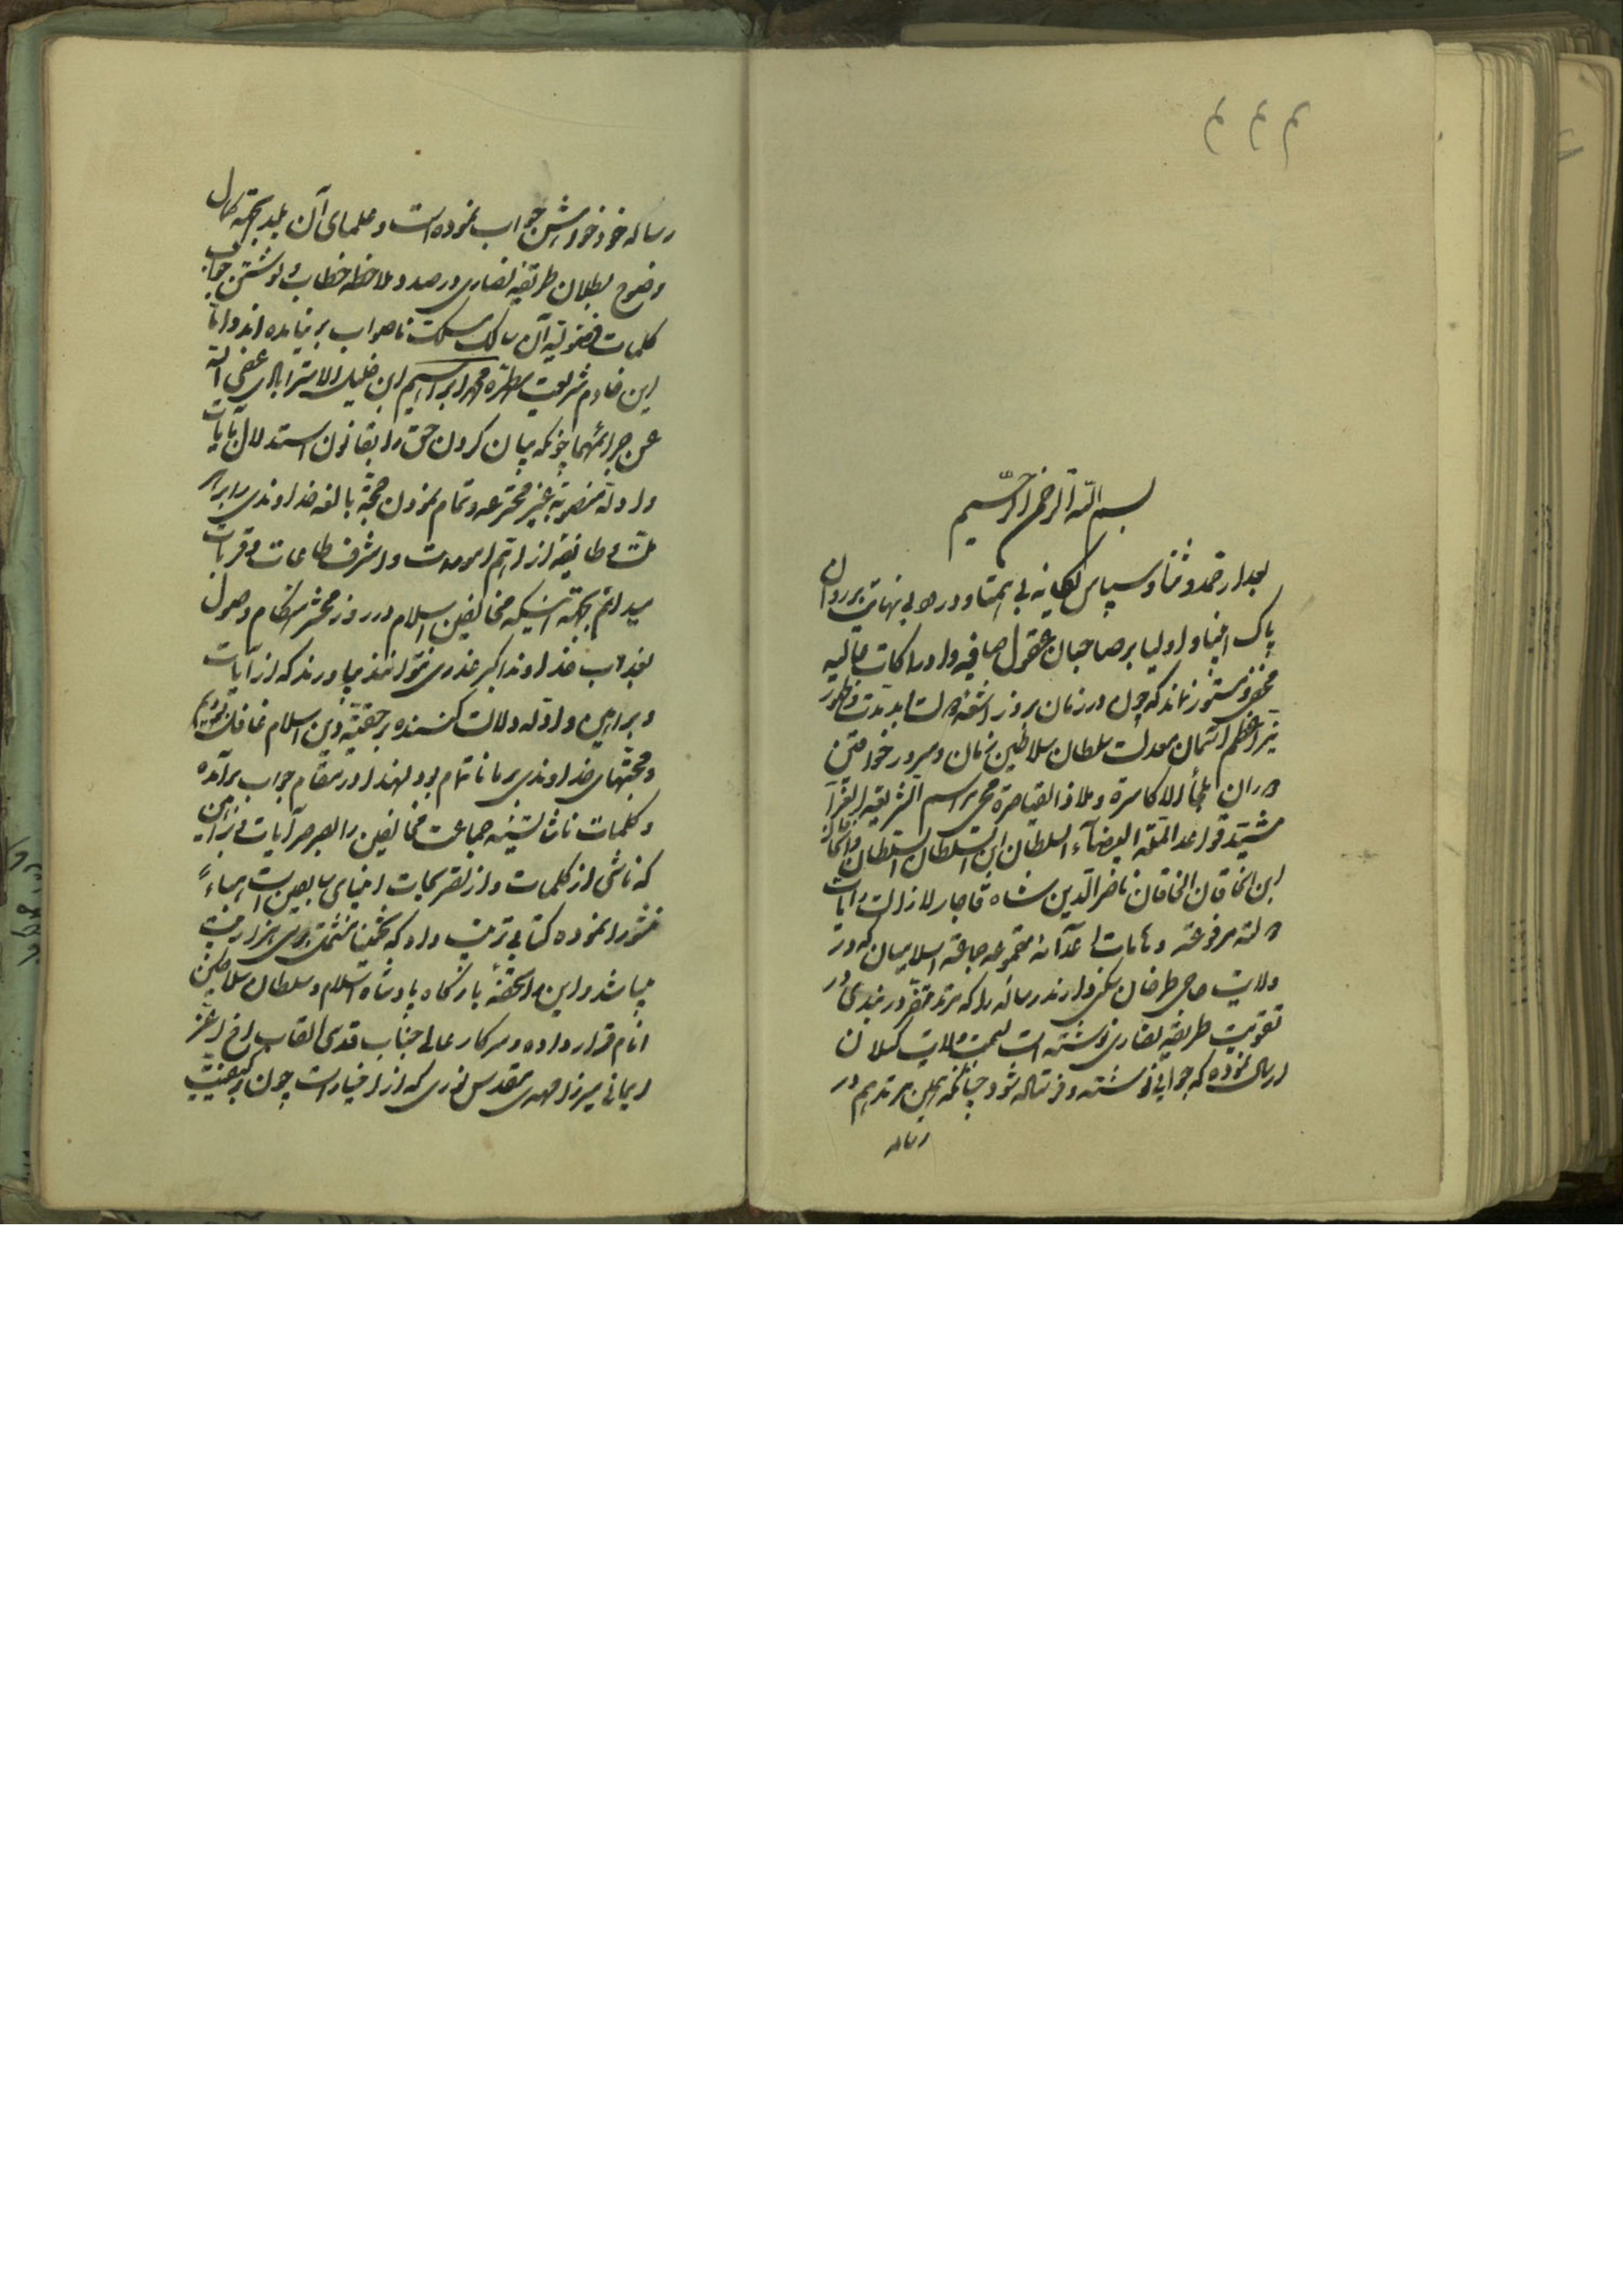 بسم الله الرحمن الرحیم
بعد از حمد و ثنا و سپاس یکانه بی همتا و درود بی نهایت بر روان
پاک انبیا و اولیا بر صاحبان عقول صافیه و ادراکات عالیه
مخفی و مستور نماند که چون در زمان بروز اشعه دولت ابد مدت و ظهور
نیر اعظم آسمان معدلت سلطان سلاطین زمان و سرور خواقین
دوران ملجأ الاکاسرة و ملاذ القیاصرة محیی مراسم الشریعة الغرآ
مشید قواعد الملة البیضآء السلطان ابن السلطان السلطان و الخاقان
ابن الخاقان الخاقان ناصر الدین شاه قاجار لا زالت رایات
دولته مرفوعة و هامات اعدآئه مقموعه جماعة اسلامیان که در
ولایت حاجی طرخان سکنی دارند رساله را که مرتد در
تقویت طریقه نصاری نوشته است بسمت ولایت کیلان
ارسال نموده که جوابی نوشته و فرستاده شود چنانکه همین مرتد هم در
رساله
رساله خود خواهش جواب نموده است و علمای آن بلد بجهة کمال
وضوح بطلان طریقه نصاری در صدد ملاحظه خطاب و نوشتن جواب
کلمات آن سالک مسلک ناصواب بر نیامده اند و اما
این خادم شریعت مطهره محمد ابراهیم ابن خلیل الاسترابادی عفی الله
عن جرائمهما چونکه بیان کردن حق را بقانون استدلال بآیات
و ادله منصوبه غیر مخترعه و تمام نمودن حجة بالغه خداوندی را بر هر
ملت و طایفه از اهم امورات و اشرف طاعات و قربات
میدانم بجهة اینکه مخالفین اسلام در روز محشر هنکام وصول
بعذاب خداوند اکبر عذری نتوانند بیاورند که از آیات
و براهین و ادله دلالت کننده بر حقیة دین اسلام غافل بودیم
و حجتهای خداوندی بر ما ناتمام بود لهذا در مقام جواب برآمده
و کلمات جماعت مخالفین را بصرصر آیات و براهین
که ناشی از کلمات و از تصریحات انبیای سابقین است هباءً
منثورا نموده کتابی ترتیب داد که تخمینا مشتمل بر سی هزار بیت
میباشد و این را تحفهٔ بارکاه پادشاه اسلام و سلطان سلاطین
انام قرار داده و سرکار عالی جناب قدسی القاب اخ اعز
ایمانی میرزا مهدی مقدس نوری که از اخیار است چون کیفیت